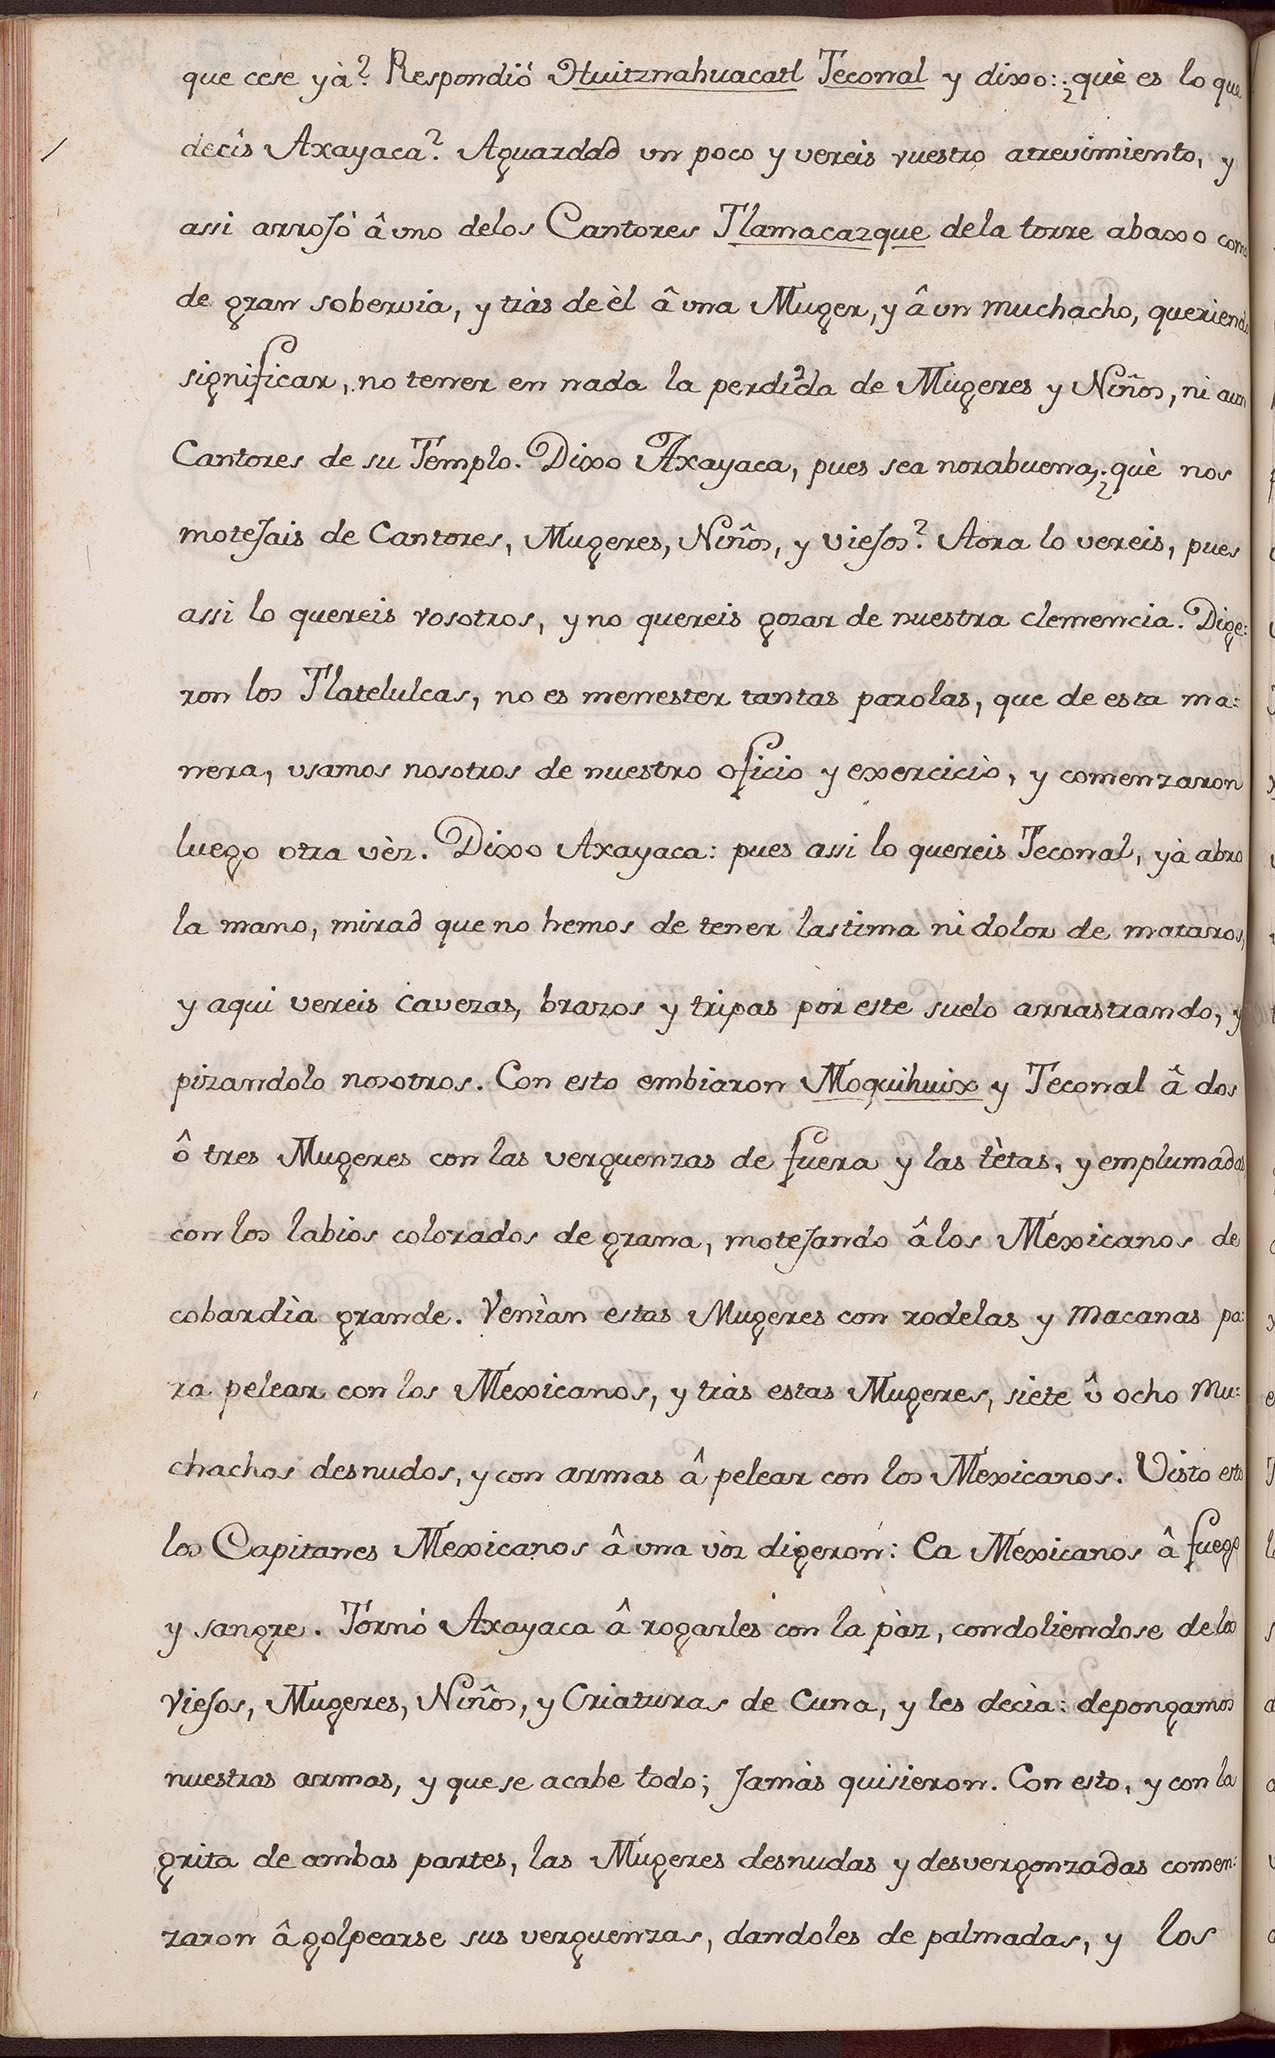 que cese yà? Respondió Huitznahuacatl Teconal y dixo: ¿què es lo que
decis Axayaca? Aguardad un poco y vereis vuestro atrevimiento, y
assi arrojó â uno delos Cantores Tlamacazque dela torre abaxo como
de gran sobervia, y tràs de èl â una Muger, y â un muchacho, queriendo
significar, no tener en nada la perdida de Mugeres y Niños, ni aun
Cantores de su Templo. Dixo Axayaca, pues sea norabuena, ¿què nos
motejais de Cantores, Mugeres, Niños, y viejos? Aora lo vereis, pues
assi lo quereis vosotros, y no quereis gozar de nuestra clemencia. Dige:
ron los Tlatelulcas, no es menester tantas parolas, que de esta ma:
nera, usamos nosotros de nuestro oficio y exercicio, y comenzaron
luego otra vèz. Dixo Axayaca: pues assi lo quereis Teconal, yà abro
la mano, mirad que no hemos de tener lastima ni dolor de mataros,
y aqui vereis cavezas, brazos y tripas por este suelo arrastrando, y
pizandolo nosotros. Con esto embiaron Moquihuix y Teconal â dos
ô tres Mugeres con las verguenzas de fuera y las tètas, y emplumadas
con los labios colorados de grana, motejando âlos Mexicanos de
cobardìa grande. Venìan estas Mugeres con rodelas y macanas pa:
ra pelear con los Mexicanos, y tràs estas Mugeres, siete û ocho Mu:
chachos desnudos, y con armas â pelear con los Mexicanos. Visto esto
los Capitanes Mexicanos â una vòz digeron: Ea Mexicanos â fuego
y sangre. Tornó Axayaca â rogarles con la pàz, condoliendose delos
Viejos, Mugeres, Niños, y Criaturas de Cuna, y les decìa: depongamos
nuestras armas, y que se acabe todo; Jamàs quisieron. Con esto, y con la
grita de ambas partes, las Mugeres desnudas y desvergonzadas comen:
zaron â golpearse sus verguenzas, dandoles de palmadas, y los